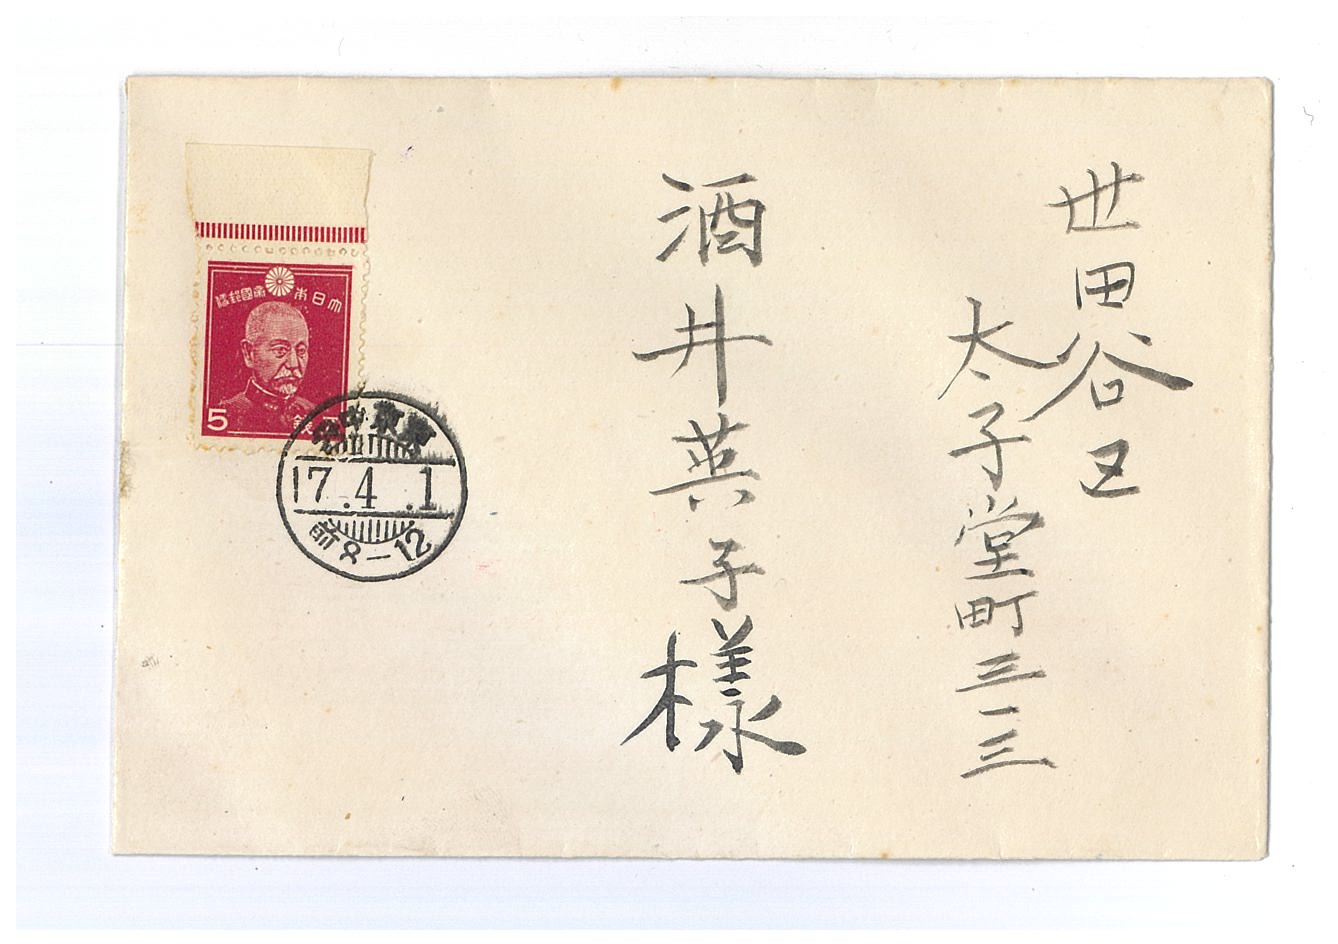 世田谷区
太子堂町三一三
酒井英子様
大日本帝國郵便
5
東京中央
17.4.1
前8-12